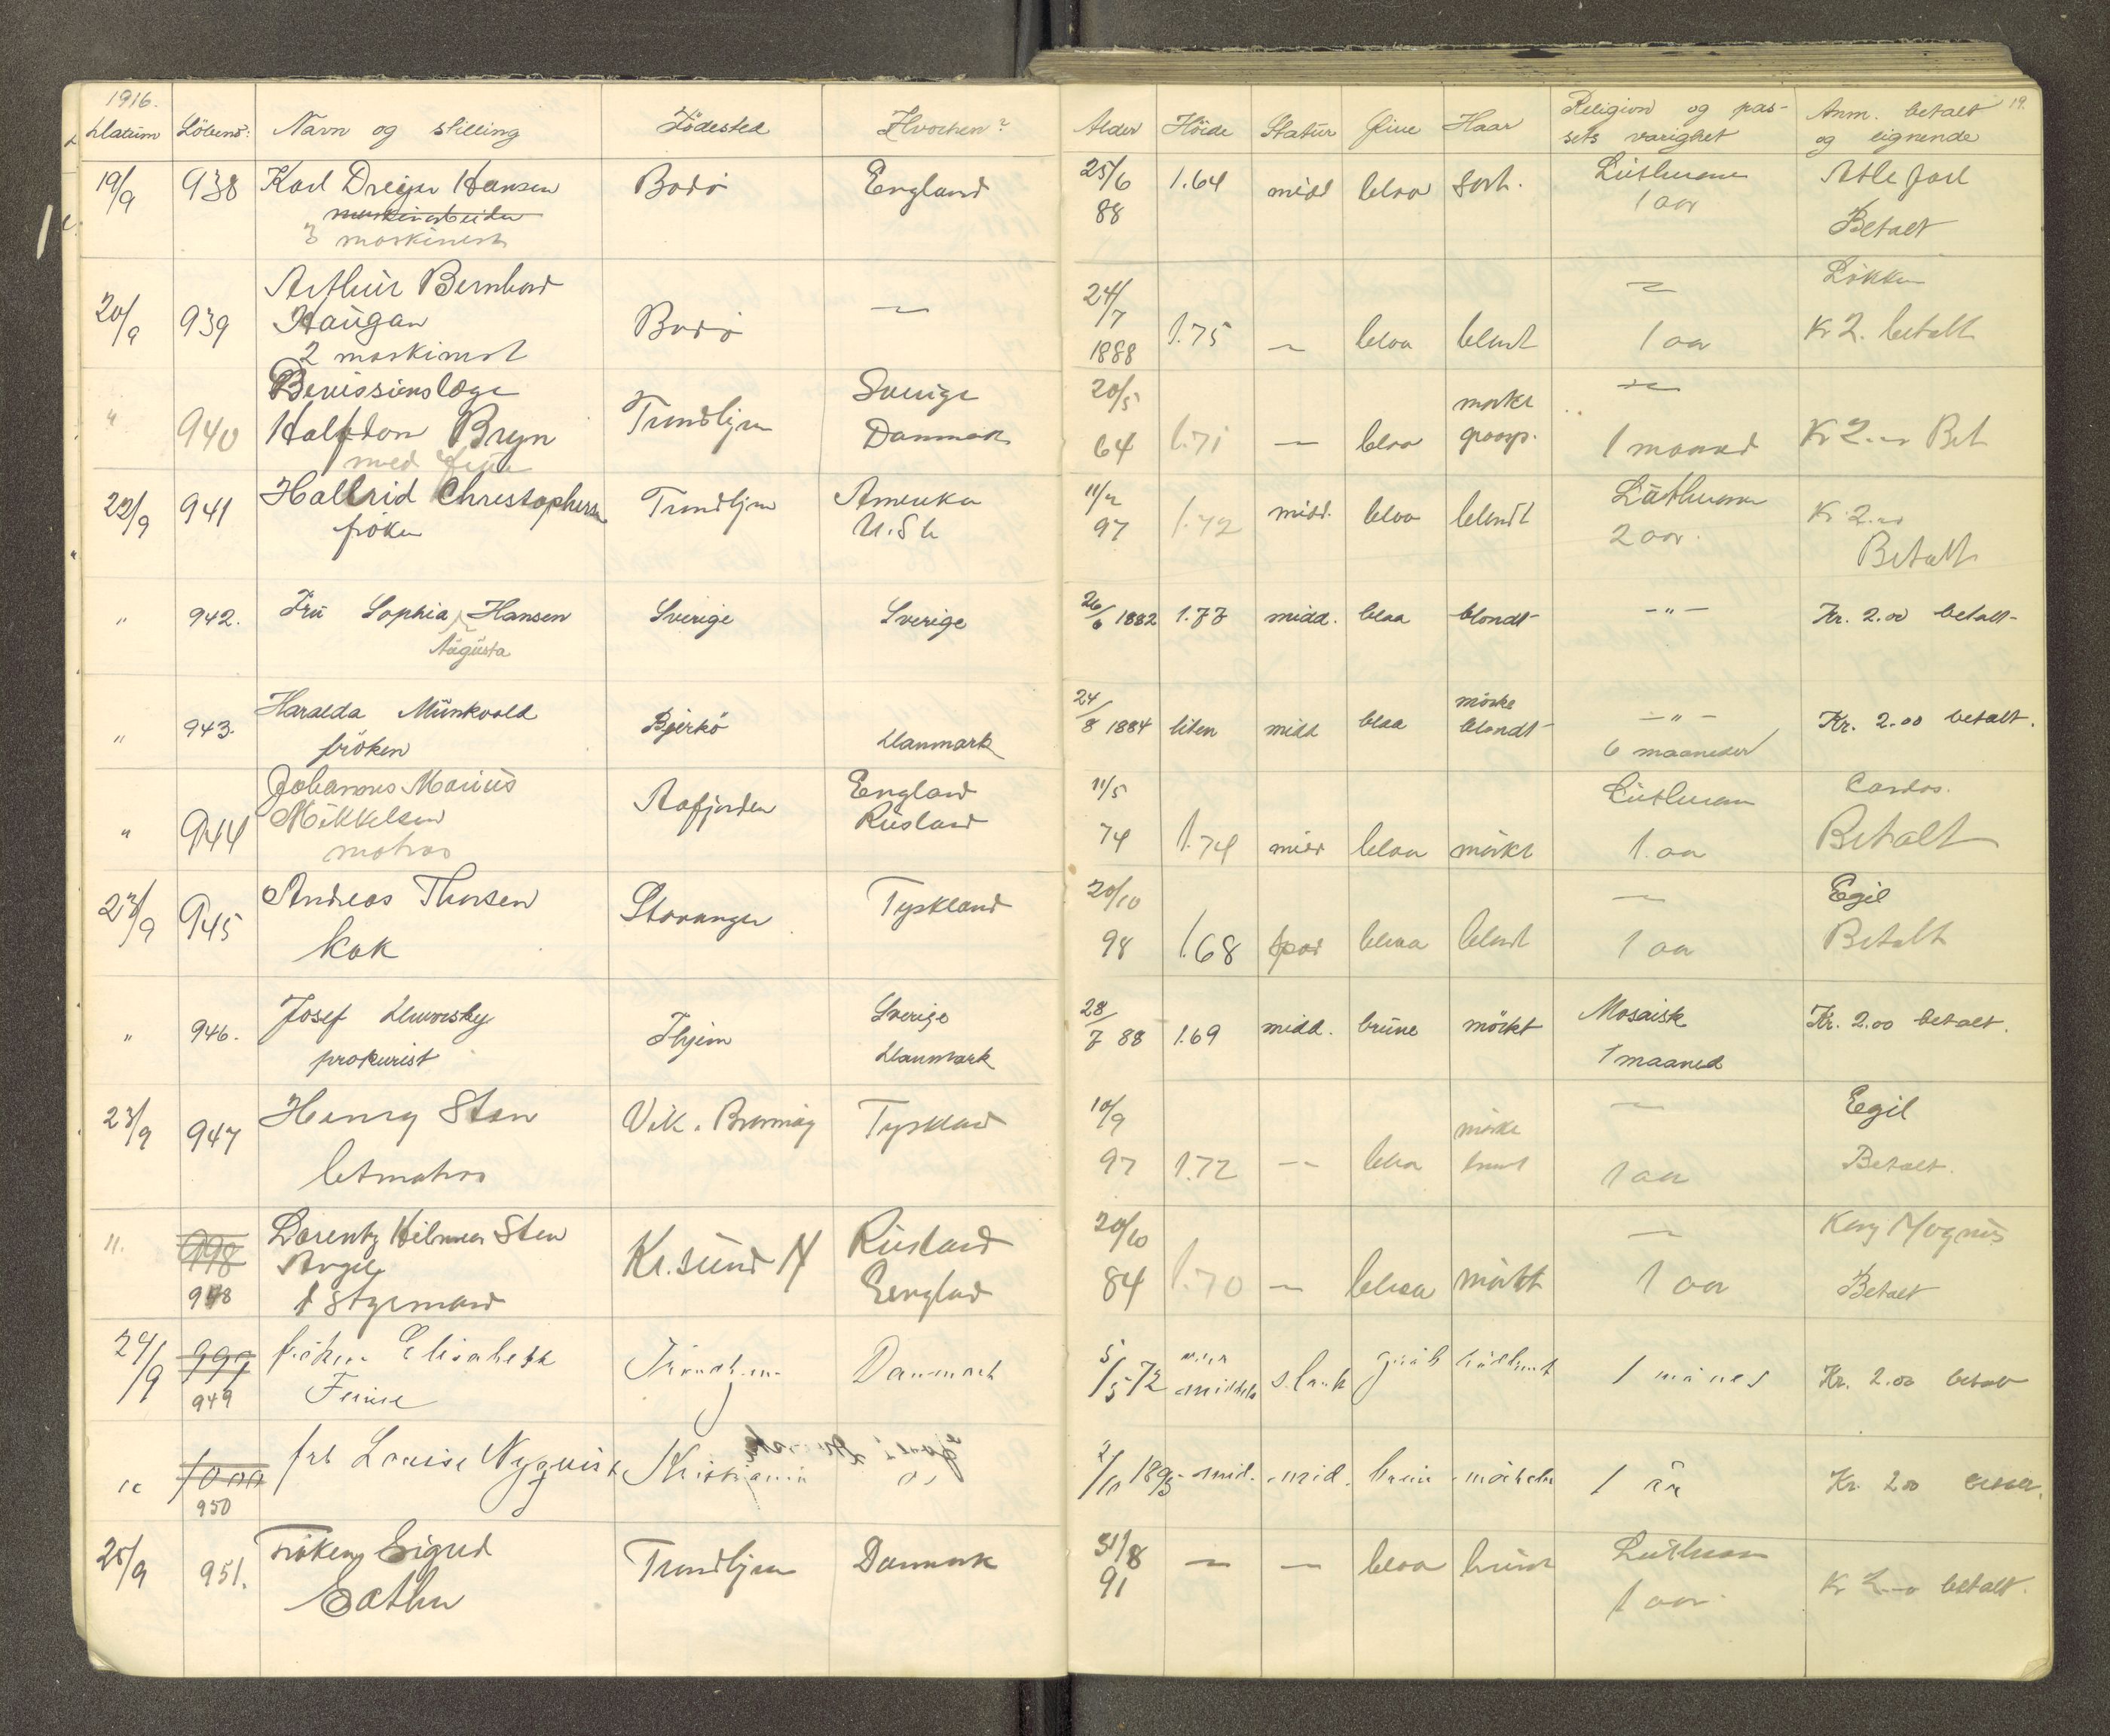 1916.
Datum Löbenr: Navn og stilling Födested Hvorhen? Alder Höide Statur Öine Haar Religion og pas-
sets varighet Anm. betalt
og lignende 19.
19/9 938 Karl Hansen Bodö England 25/6 1.64 midd blaa Luthersk Atle Jarl
maskinarbeider 88 1 aar
3 maskinist Betalt
Arthur Bernhard 24/7 Lökken
20/9 939 Haugan Bodö 1.75 — blaa blondt 1 aar Kr 2. betalt
2 maskinist 1888
Sverige 20/5 mörke
" 940 Halfdan Bryn Trondhjem Danmark 64 1.71 — blaa 1 maaned Kr 2.00 Bet
med frue
22/9 941 Hallrid Christophersen Trondhjem Amerika 11/2 midd. blaa blondt Luthersk Kr 2.00
fröken U.S.A 97 1.72 2 aar. Betalt
" 942. Fru Sophia Hansen Sverige Sverige 26/6 1882 1.77 midd. blaa blondt -"- Kr. 2.00 betalt
Augusta
Haralda Munkvold 24 mörke
" 943. Bjerkö 8 1884 liten midd blaa blondt -"- Kr. 2.00 betalt.
fröken Danmark 6 maaneder
Johannes Marius England 11/5 Luthersk
" 944 Mikkelsen Aafjorden Rusland 74 1.74 midd blaa mörkt 1 aar Betalt
matros
23/9 945 Andreas Thorsen Stavanger Tyskland 20/10 — Egil
kok 98 1.68 blaa blondt 1 aar Betalt
Josef Sverige 28 Mosaisk
" 946. Thjem 7 88 1.69 midd. brune mörkt Kr. 2.00 betalt.
prokurist Danmark 1 maaned
23/9 947 Henry Sten Vik. Brönnöy Tyskland 10/9 mörke — Egil
letmatros 97 1.72 — blaa 1 aar Betalt.
". 998 Lorentz Hilmer Sten Kr.sund N Rusland 20/10 — Kong Magnus
948 1 Styrmand England 84 1.70 — blaa mörkt 1 aar Betalt
24/9 999 fröken Elisabeth Trondhjem Danmark 5/5 72 slank 1 måned Kr. 2.00 betalt
949
" 1000 frk Louise Nyquist Kristiania 2/10 1895 mid. mid. 1 år Kr. 2.00
950
25/9 951. Fröken Sigrid Trondhjem Danmark 31/8 — — blaa brunt Luthersk Kr 2.00 betalt.
91 1 aar.